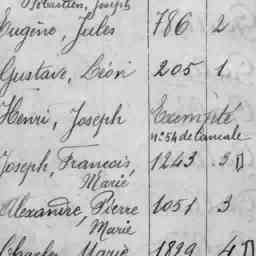 Sébastien, Joseph
Eugène, Jules 786 2
Gustave, Léon 205 1
Henri, Joseph Exempté
n° 54 de
Joseph, François, 1243 3
Marie
Alexandre, Pierre 1051 3
Marie
Charles, Marie 1899 4